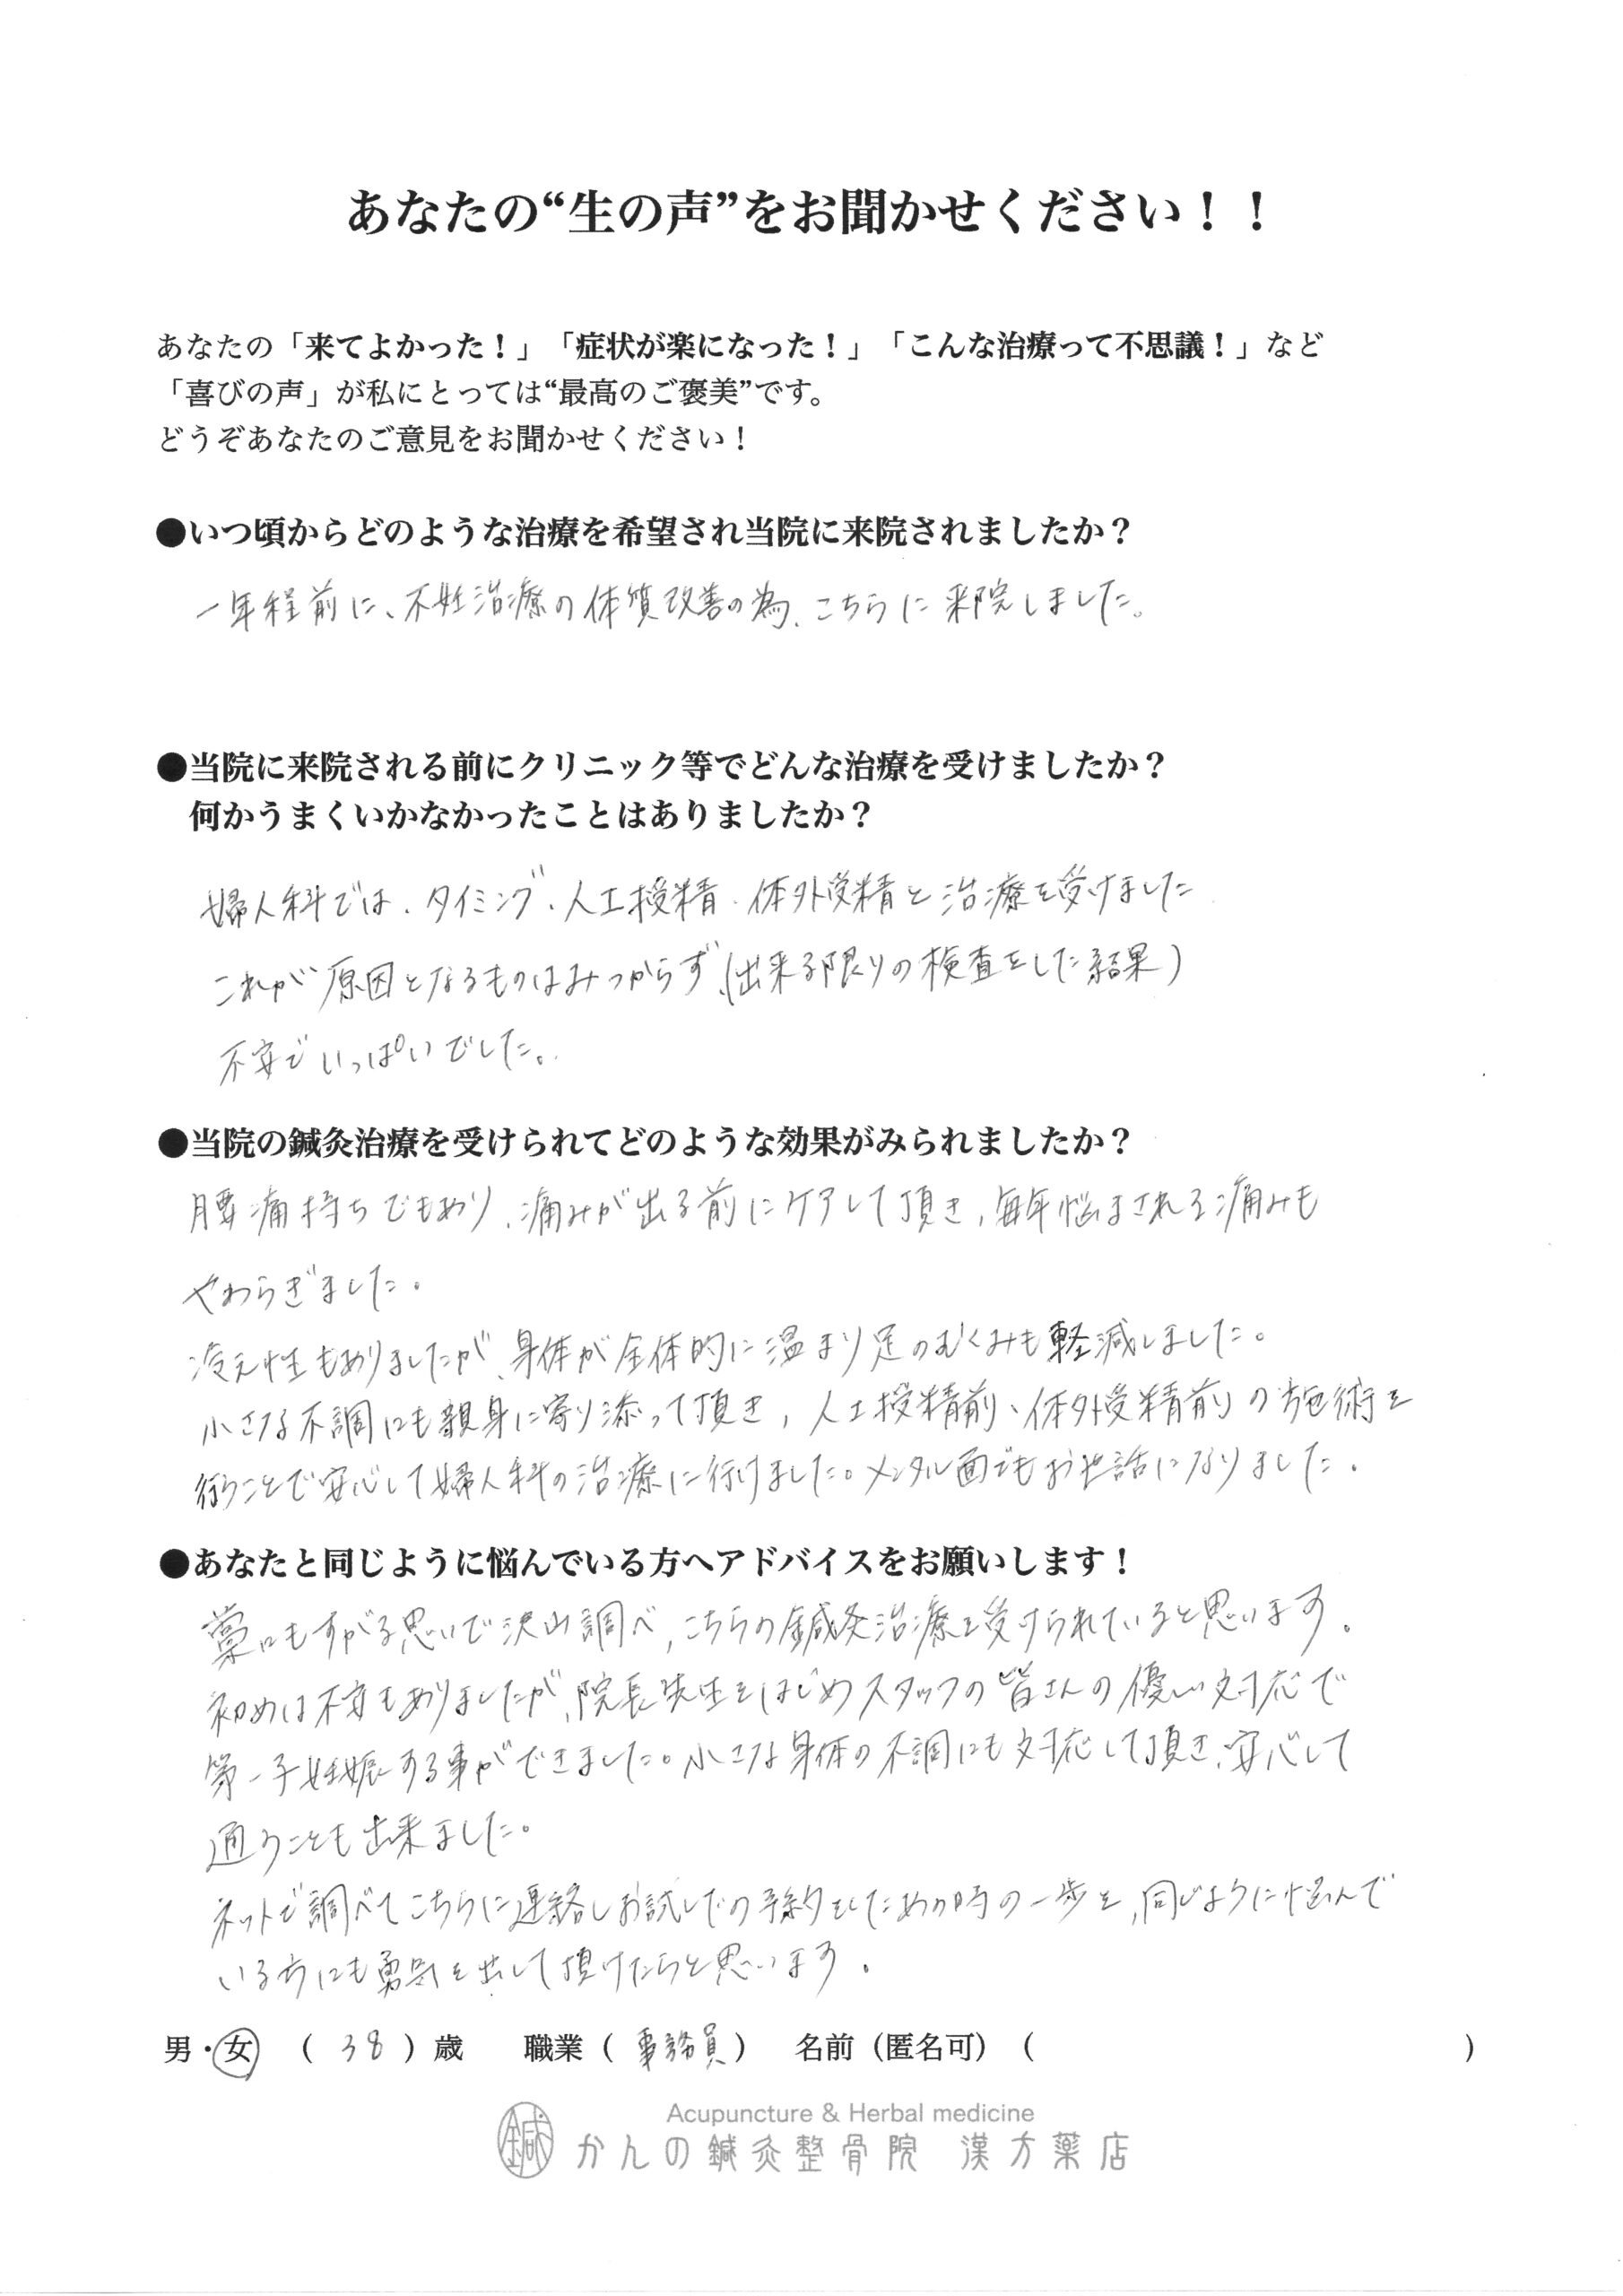 あなたの“生の声”をお聞かせください！！
あなたの「来てよかった！」「症状が楽になった！」「こんな治療って不思議！」など
「喜びの声」が私にとっては“最高のご褒美”です。
どうぞあなたのご意見をお聞かせください！
●いつ頃からどのような治療を希望され当院に来院されましたか？
一年程前に、不妊治療の体質改善の為、こちらに来院しました。
●当院に来院される前にクリニック等でどんな治療を受けましたか？
何かうまくいかなかったことはありましたか？
婦人科では、タイミング、人工授精、体外受精と治療を受けました
これが原因となるものはみつからず、(出来る限りの検査をした結果)
不安でいっぱいでした。
●当院の鍼灸治療を受けられてどのような効果がみられましたか？
腰痛持ちでもあり、痛みが出る前にケアして頂き、毎年悩まされる痛みも
やわらぎました。
冷え性もありましたが、身体が全体的に温まり足のむくみも軽減しました。
小さな不調にも親身に寄り添って頂き、人工授精前、体外受精前の施術を
行うことで安心して婦人科の治療に行けました。メンタル面でもお世話になりました。
●あなたと同じように悩んでいる方へアドバイスをお願いします！
藁にもすがる思いで沢山調べ、こちらの鍼灸治療を受けられていると思います。
初めは不安もありましたが、院長先生をはじめスタッフの皆さんの優しい対応で
第一子妊娠する事ができました。小さな身体の不調にも対応して頂き、安心して
通うことも出来ました。
ネットで調べてこちらに連絡しお試しでの予約をしたあの時の一歩を、同じように悩んで
いる方にも勇気を出して頂けたらと思います。
男・女 （ 38 ）歳 職業（ 事務員 ） 名前（匿名可）（ ）
Acupuncture & Herbal medicine
鍼 かんの鍼灸整骨院 漢方薬店